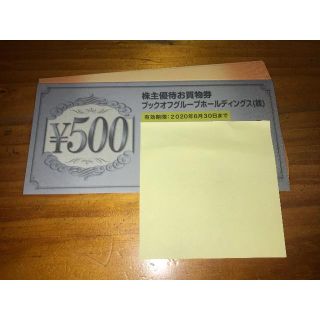 株主優待お買物券
ブックオフグループホールディングス(株)
¥500
有効期限:2020年6月30日まで